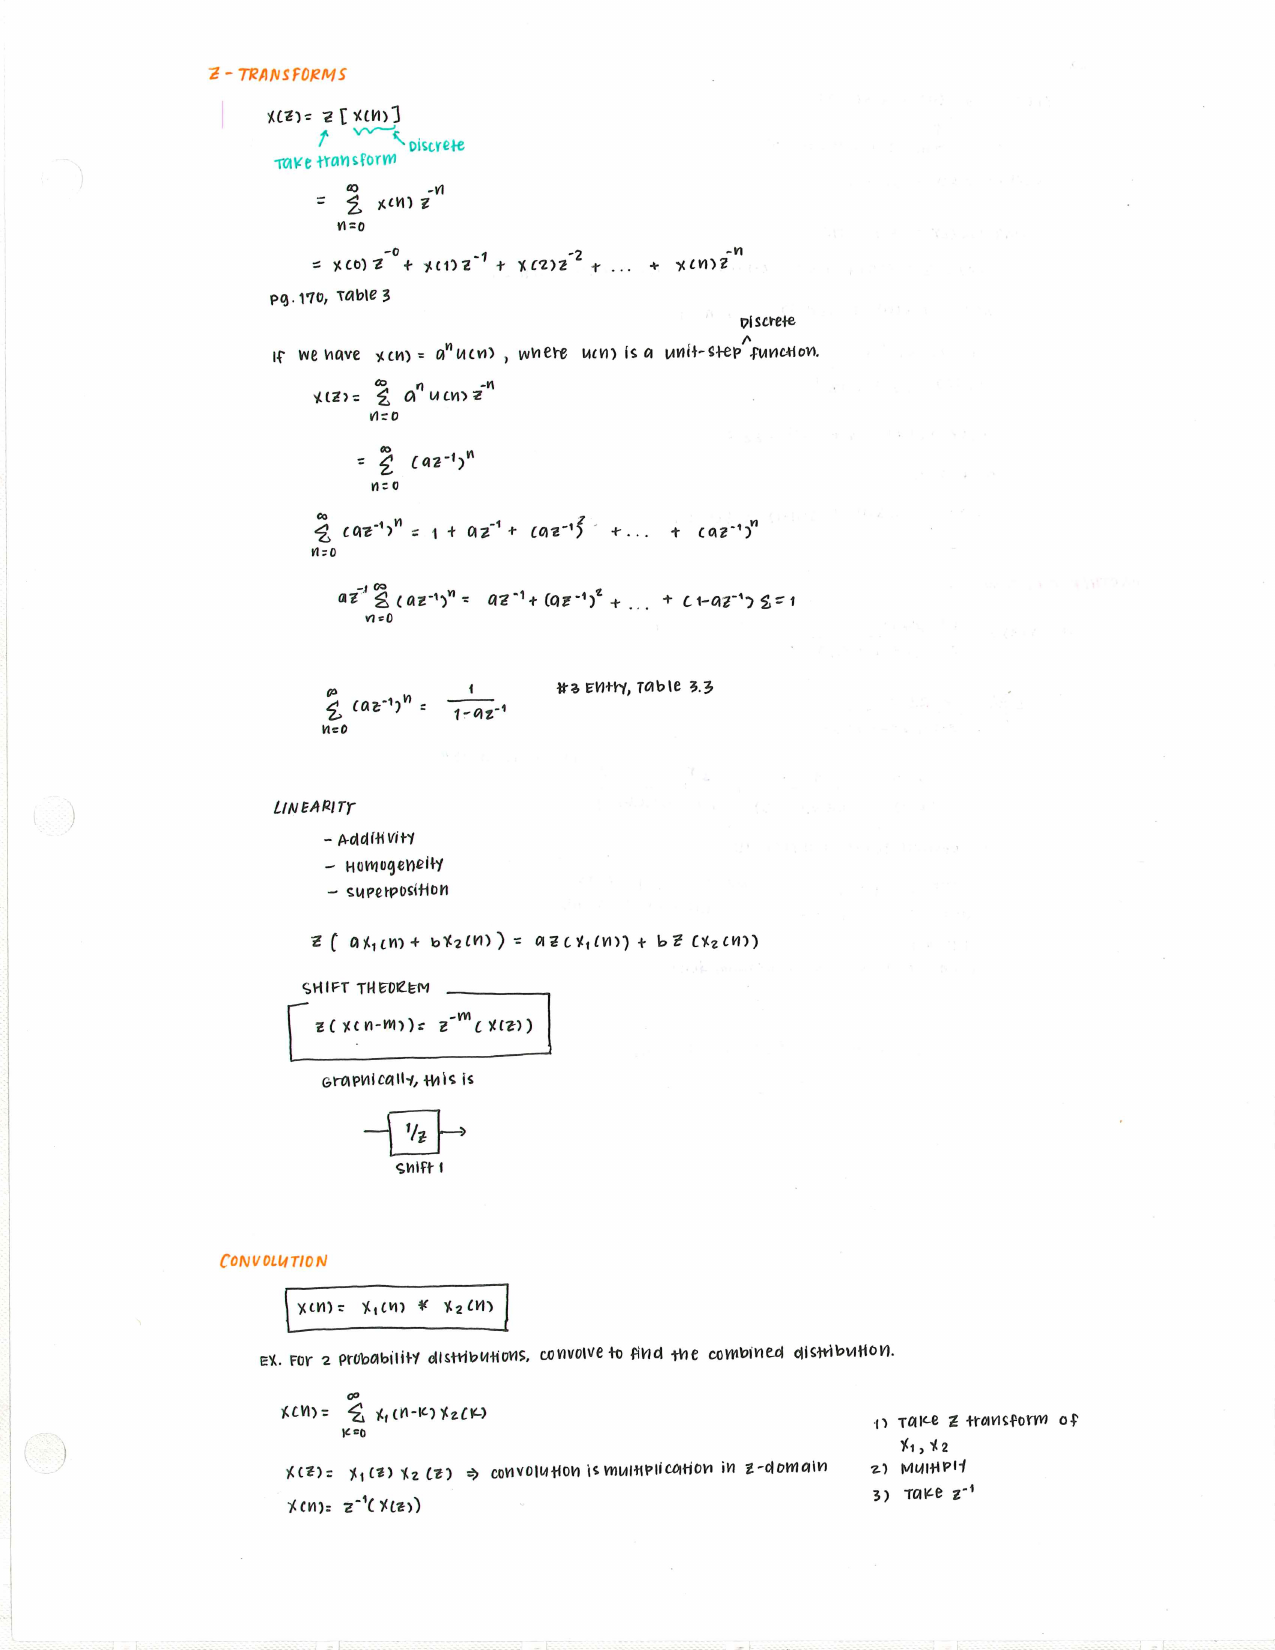 Z - TRANSFORMS
X(Z) = Z [ X(n) ]
Discrete
Take transform
= ∞ Σ n=0 x(n) z^-n
= x(0) z^-0 + x(1) z^-1 + x(2) z^-2 + ... + x(n) z^-n
Pg. 170, Table 3
Discrete
If we have x(n) = a^n u(n) , where u(n) is a unit-step ^ function.
X(Z) = ∞ Σ n=0 a^n u(n) z^-n
= ∞ Σ n=0 (az^-1)^n
∞ Σ n=0 (az^-1)^n = 1 + az^-1 + (az^-1)^2 + ... + (az^-1)^n
az^-1 ∞ Σ n=0 (az^-1)^n = az^-1 + (az^-1)^2 + ... + (1-az^-1) Σ = 1
∞ Σ n=0 (az^-1)^n = 1 / 1-az^-1 #3 Entry, Table 3.3
LINEARITY
- Additivity
- Homogeneity
- Superposition
Z ( a x₁(n) + b x₂(n) ) = a Z (x₁(n)) + b Z (x₂(n))
SHIFT THEOREM
Z ( x(n-m) ) = z^-m ( X(Z) )
Graphically, this is
1/z
Shift 1
CONVOLUTION
x(n) = x₁(n) * x₂(n)
EX. For 2 probability distributions, convolve to find the combined distribution.
x(n) = ∞ Σ k=0 x₁(n-k) x₂(k)
X(Z) = X₁(Z) X₂(Z) ⇒ convolution is multiplication in z-domain
x(n) = z^-1 ( X(Z) )
1) Take Z transform of
x₁, x₂
2) Multiply
3) Take z^-1